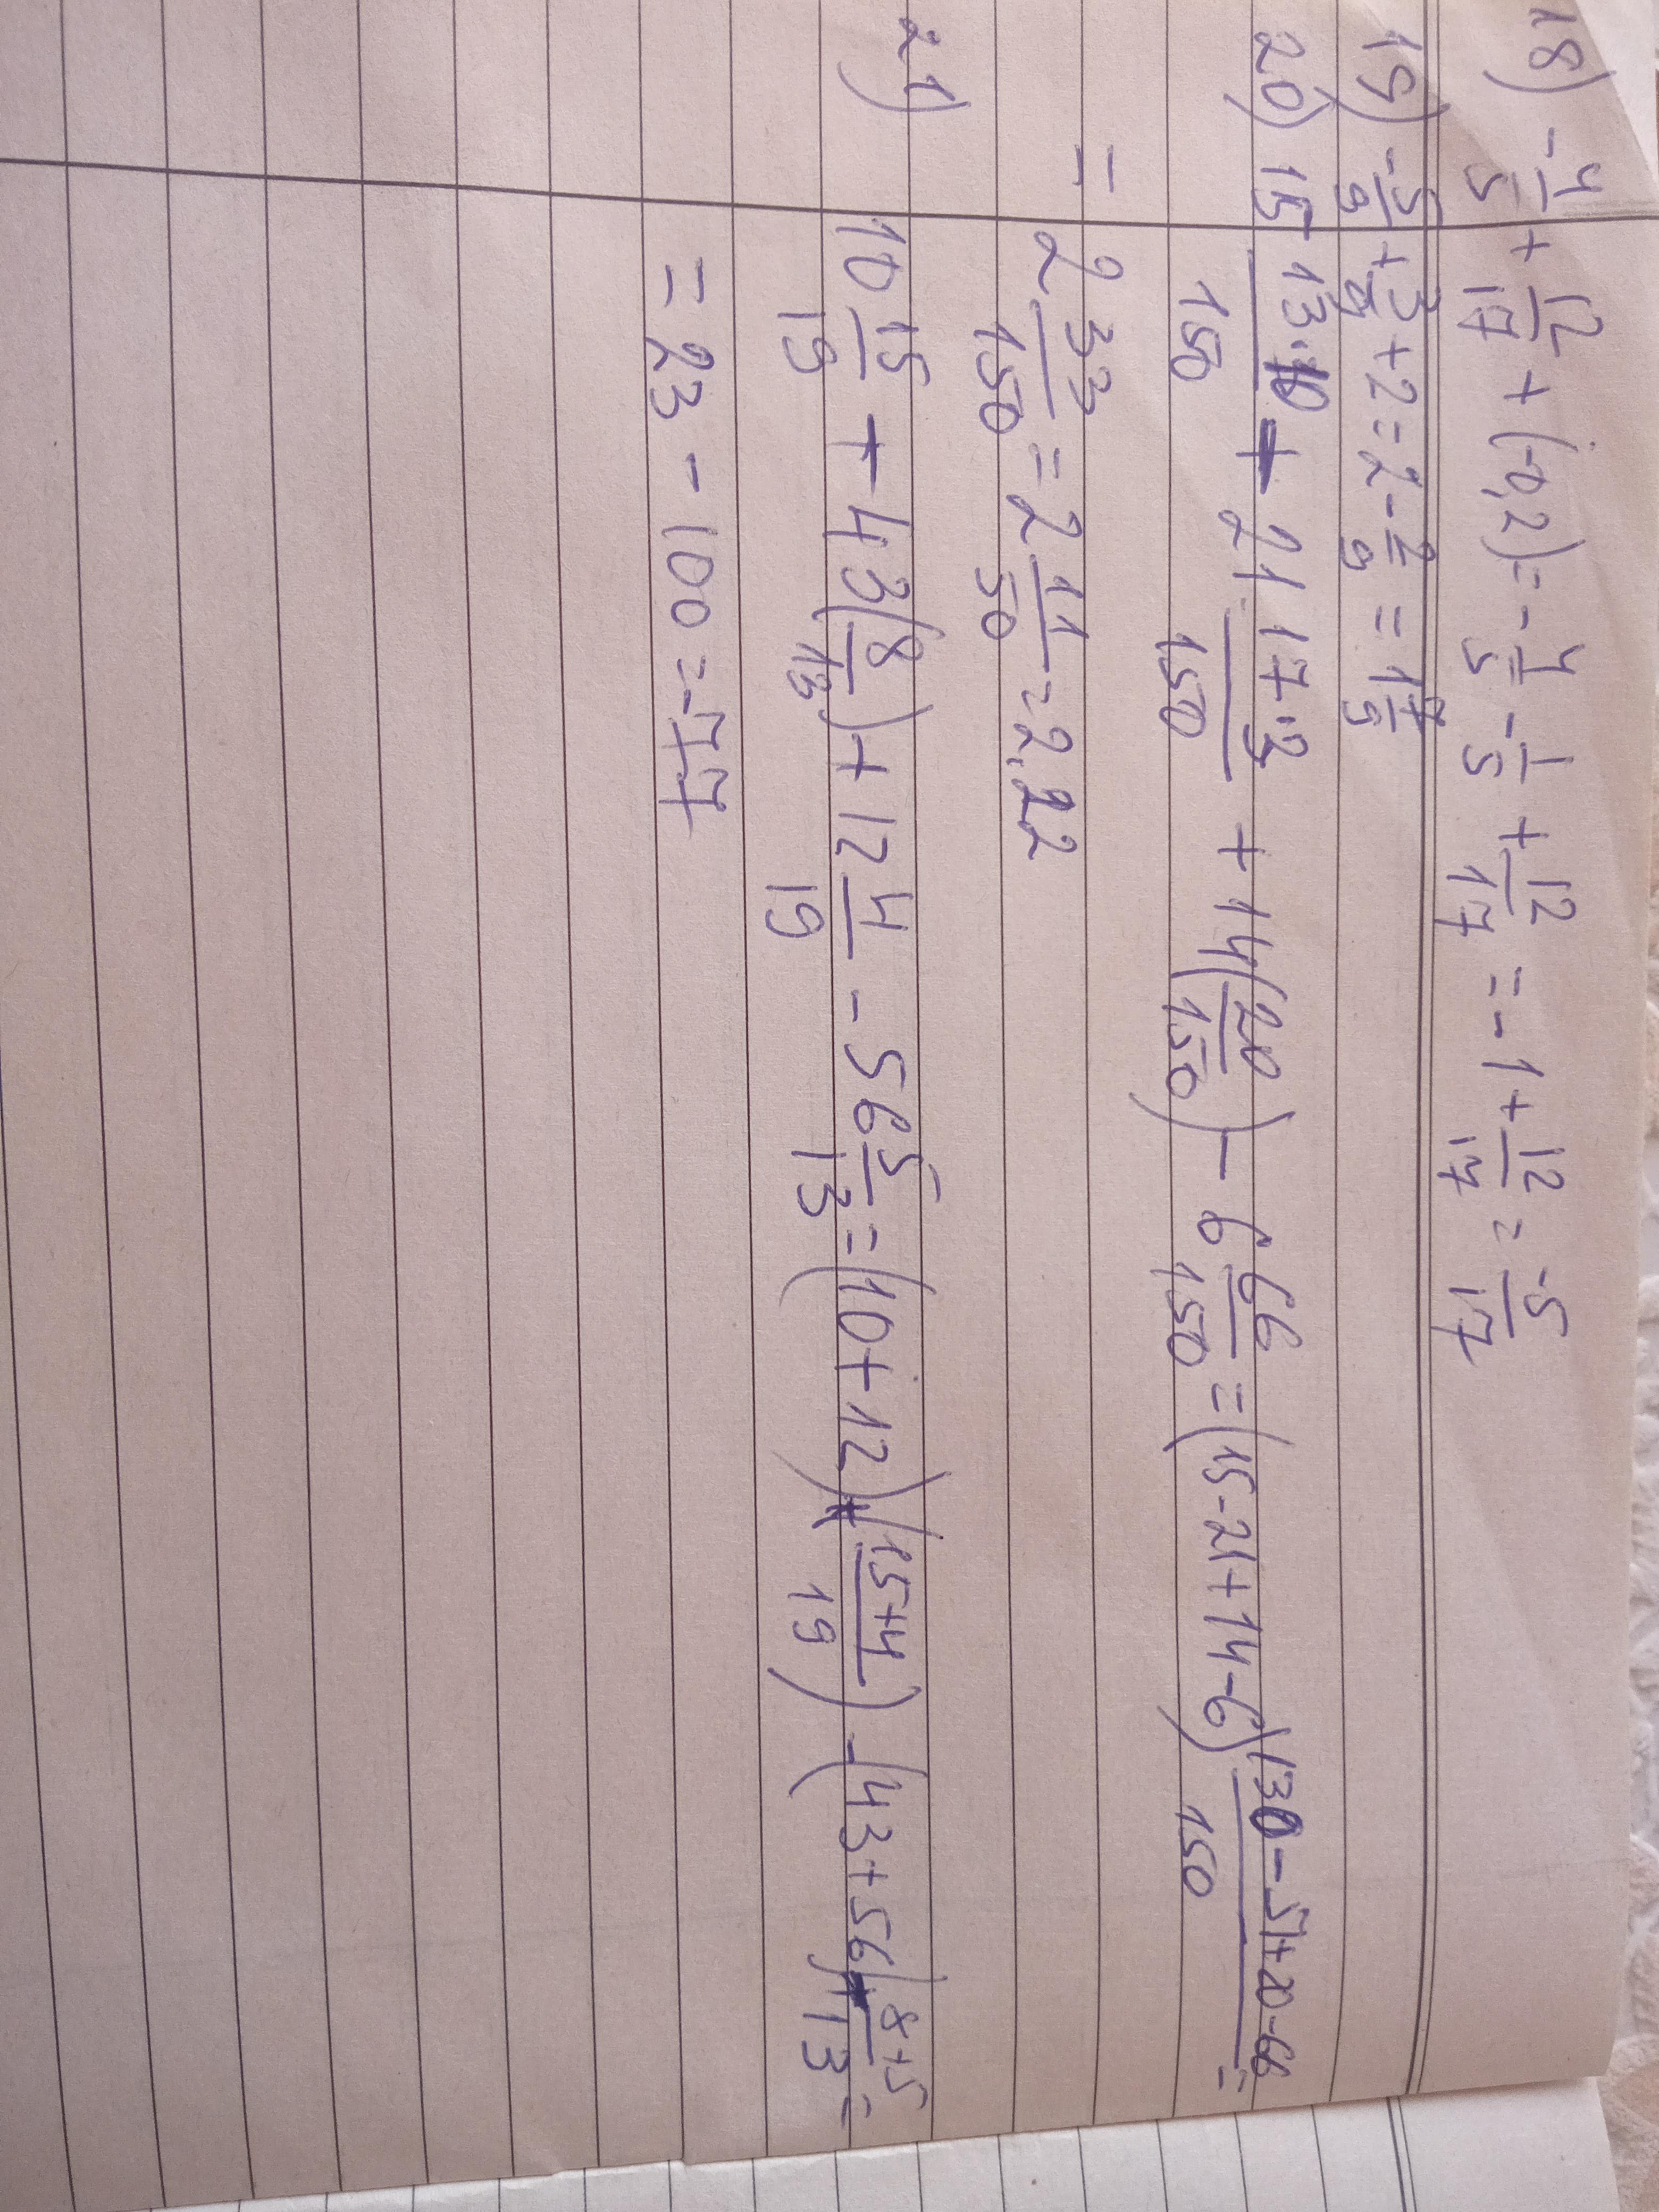 18) -4/5 + 12/17 + (-0,2) = -4/5 - 1/5 + 12/17 = -1 + 12/17 = -5/17
19) -5/9 + 3/9 + 2 = 2 - 2/9 = 1 7/9
20) 15 13·10/150 + 21 17·3/150 + 14(20/150) - 6 66/150 = (15-21+14-6) 130-51+20-66/150 =
= 2 33/150 = 2 11/50 = 2,22
21) 10 15/19 + 43(8/13) + 12 4/19 - 56 5/13 = (10+12)+(15+4/19) - (43+56)+ 8+5/13 =
= 23 - 100 = -77